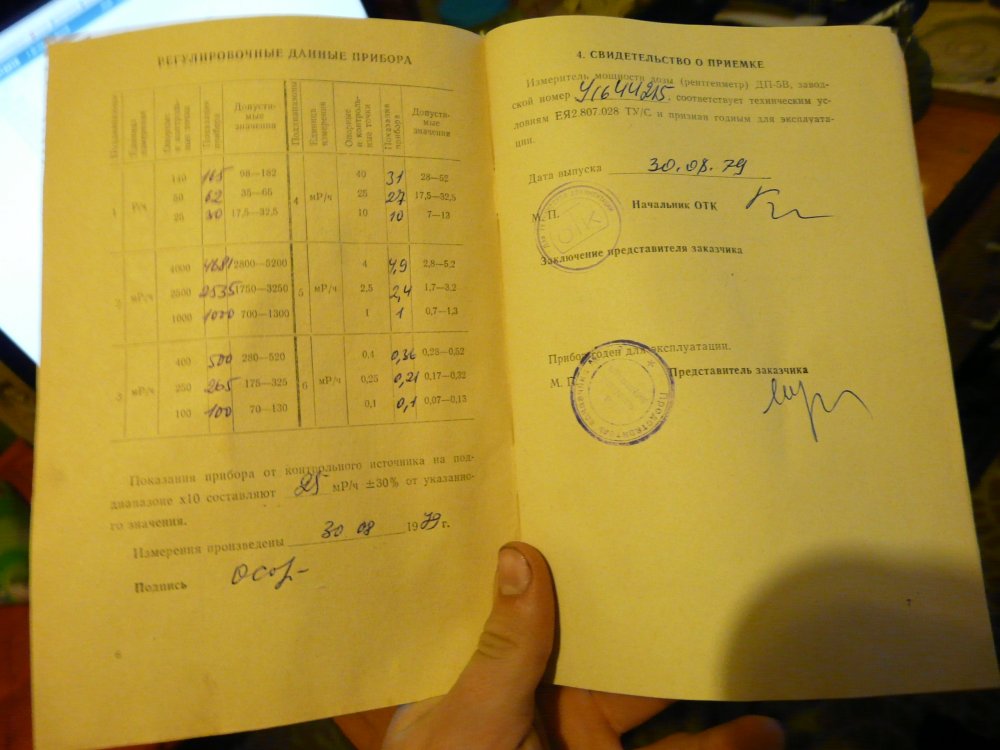 РЕГУЛИРОВОЧНЫЕ ДАННЫЕ ПРИБОРА
Поддиапазоны Единица измерения Опорные и контрольные точки Показания прибора Допустимые значения Поддиапазоны Единица измерения Опорные и контрольные точки Показания прибора Допустимые значения
140 165 98—182 40 31 28—52
1 Р/ч 50 62 35—65 4 мР/ч 25 27 17,5—32,5
25 30 17,5—32,5 10 10 7—13
4000 4681 2800—5200 4 4,9 2,8—5,2
2 мР/ч 2500 2535 1750—3250 5 мР/ч 2,5 2,4 1,7—3,2
1000 1000 700—1300 1 1 0,7—1,3
400 500 280—520 0,4 0,36 0,28—0,52
3 мР/ч 250 265 175—325 6 мР/ч 0,25 0,21 0,17—0,32
100 100 70—130 0,1 0,1 0,07—0,13
Показания прибора от контрольного источника на под-
диапазоне х10 составляют 25 мР/ч ±30% от указанно-
го значения.
Измерения произведены 30 08 1979 г.
Подпись
6
4. СВИДЕТЕЛЬСТВО О ПРИЕМКЕ
Измеритель мощности дозы (рентгенметр) ДП-5В, завод-
ской номер У1644215. соответствует техническим ус-
ловиям ЕЯ2.807.028 ТУ/С и признан годным для эксплуата-
ции.
Дата выпуска 30.08.79
М. П. Начальник ОТК
ОТК
Заключение представителя заказчика
Прибор годен для эксплуатации.
М. П. Представитель заказчика